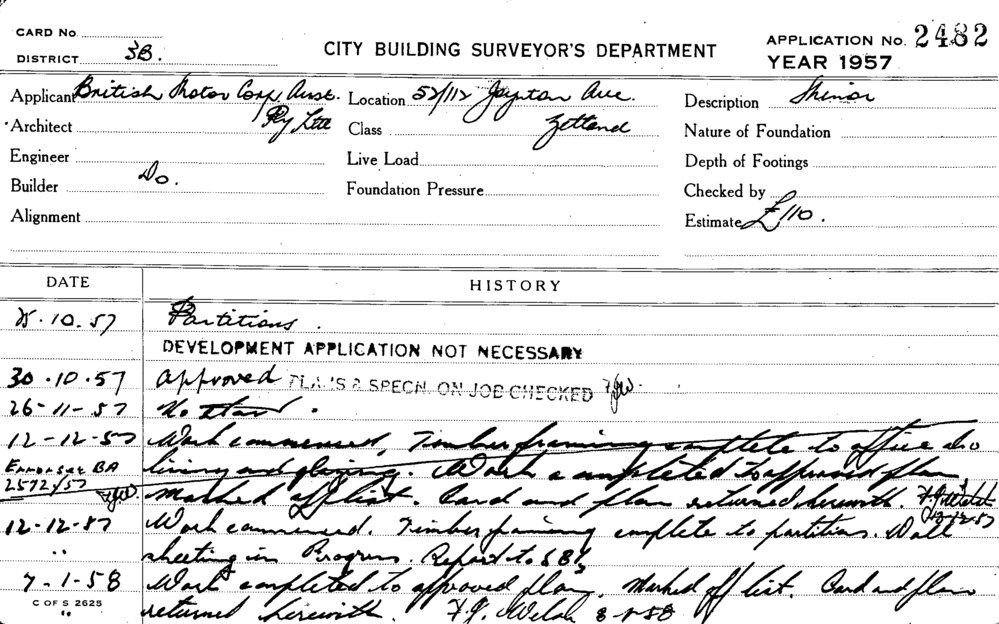 CARD No
DISTRICT 3B.
CITY BUILDING SURVEYOR'S DEPARTMENT
APPLICATION No. 2482
YEAR 1957
Applicant British Motor Corp, Aust. Pty Ltd
Location 52/112 Joynton Ave. Zetland
Description Minor
Architect
Class
Nature of Foundation
Engineer
Live Load
Depth of Footings
Builder Do.
Foundation Pressure
Checked by
Alignment
Estimate £110.
DATE
HISTORY
.10.57 Partitions.
DEVELOPMENT APPLICATION NOT NECESSARY
30.10.57 Approved PLANS & SPECN. ON JOB CHECKED FJW.
26-11-57 No start.
12-12-57 Work commenced, Timber framing complete to office also
Error see BA lining and glazing. Work completed to approved plan
2572/57 FJW. Marked off list. Card and plan returned herewith. F.J. Welsh
12-12-57 Work commenced. Timber framing complete to partitions. Wall
" sheeting in Progress. Report to SBS
7-1-58 Work completed to approved plan. Marked off list. Card and plan
C OF S 2625
" returned herewith. F.J. Welsh 8-1-58